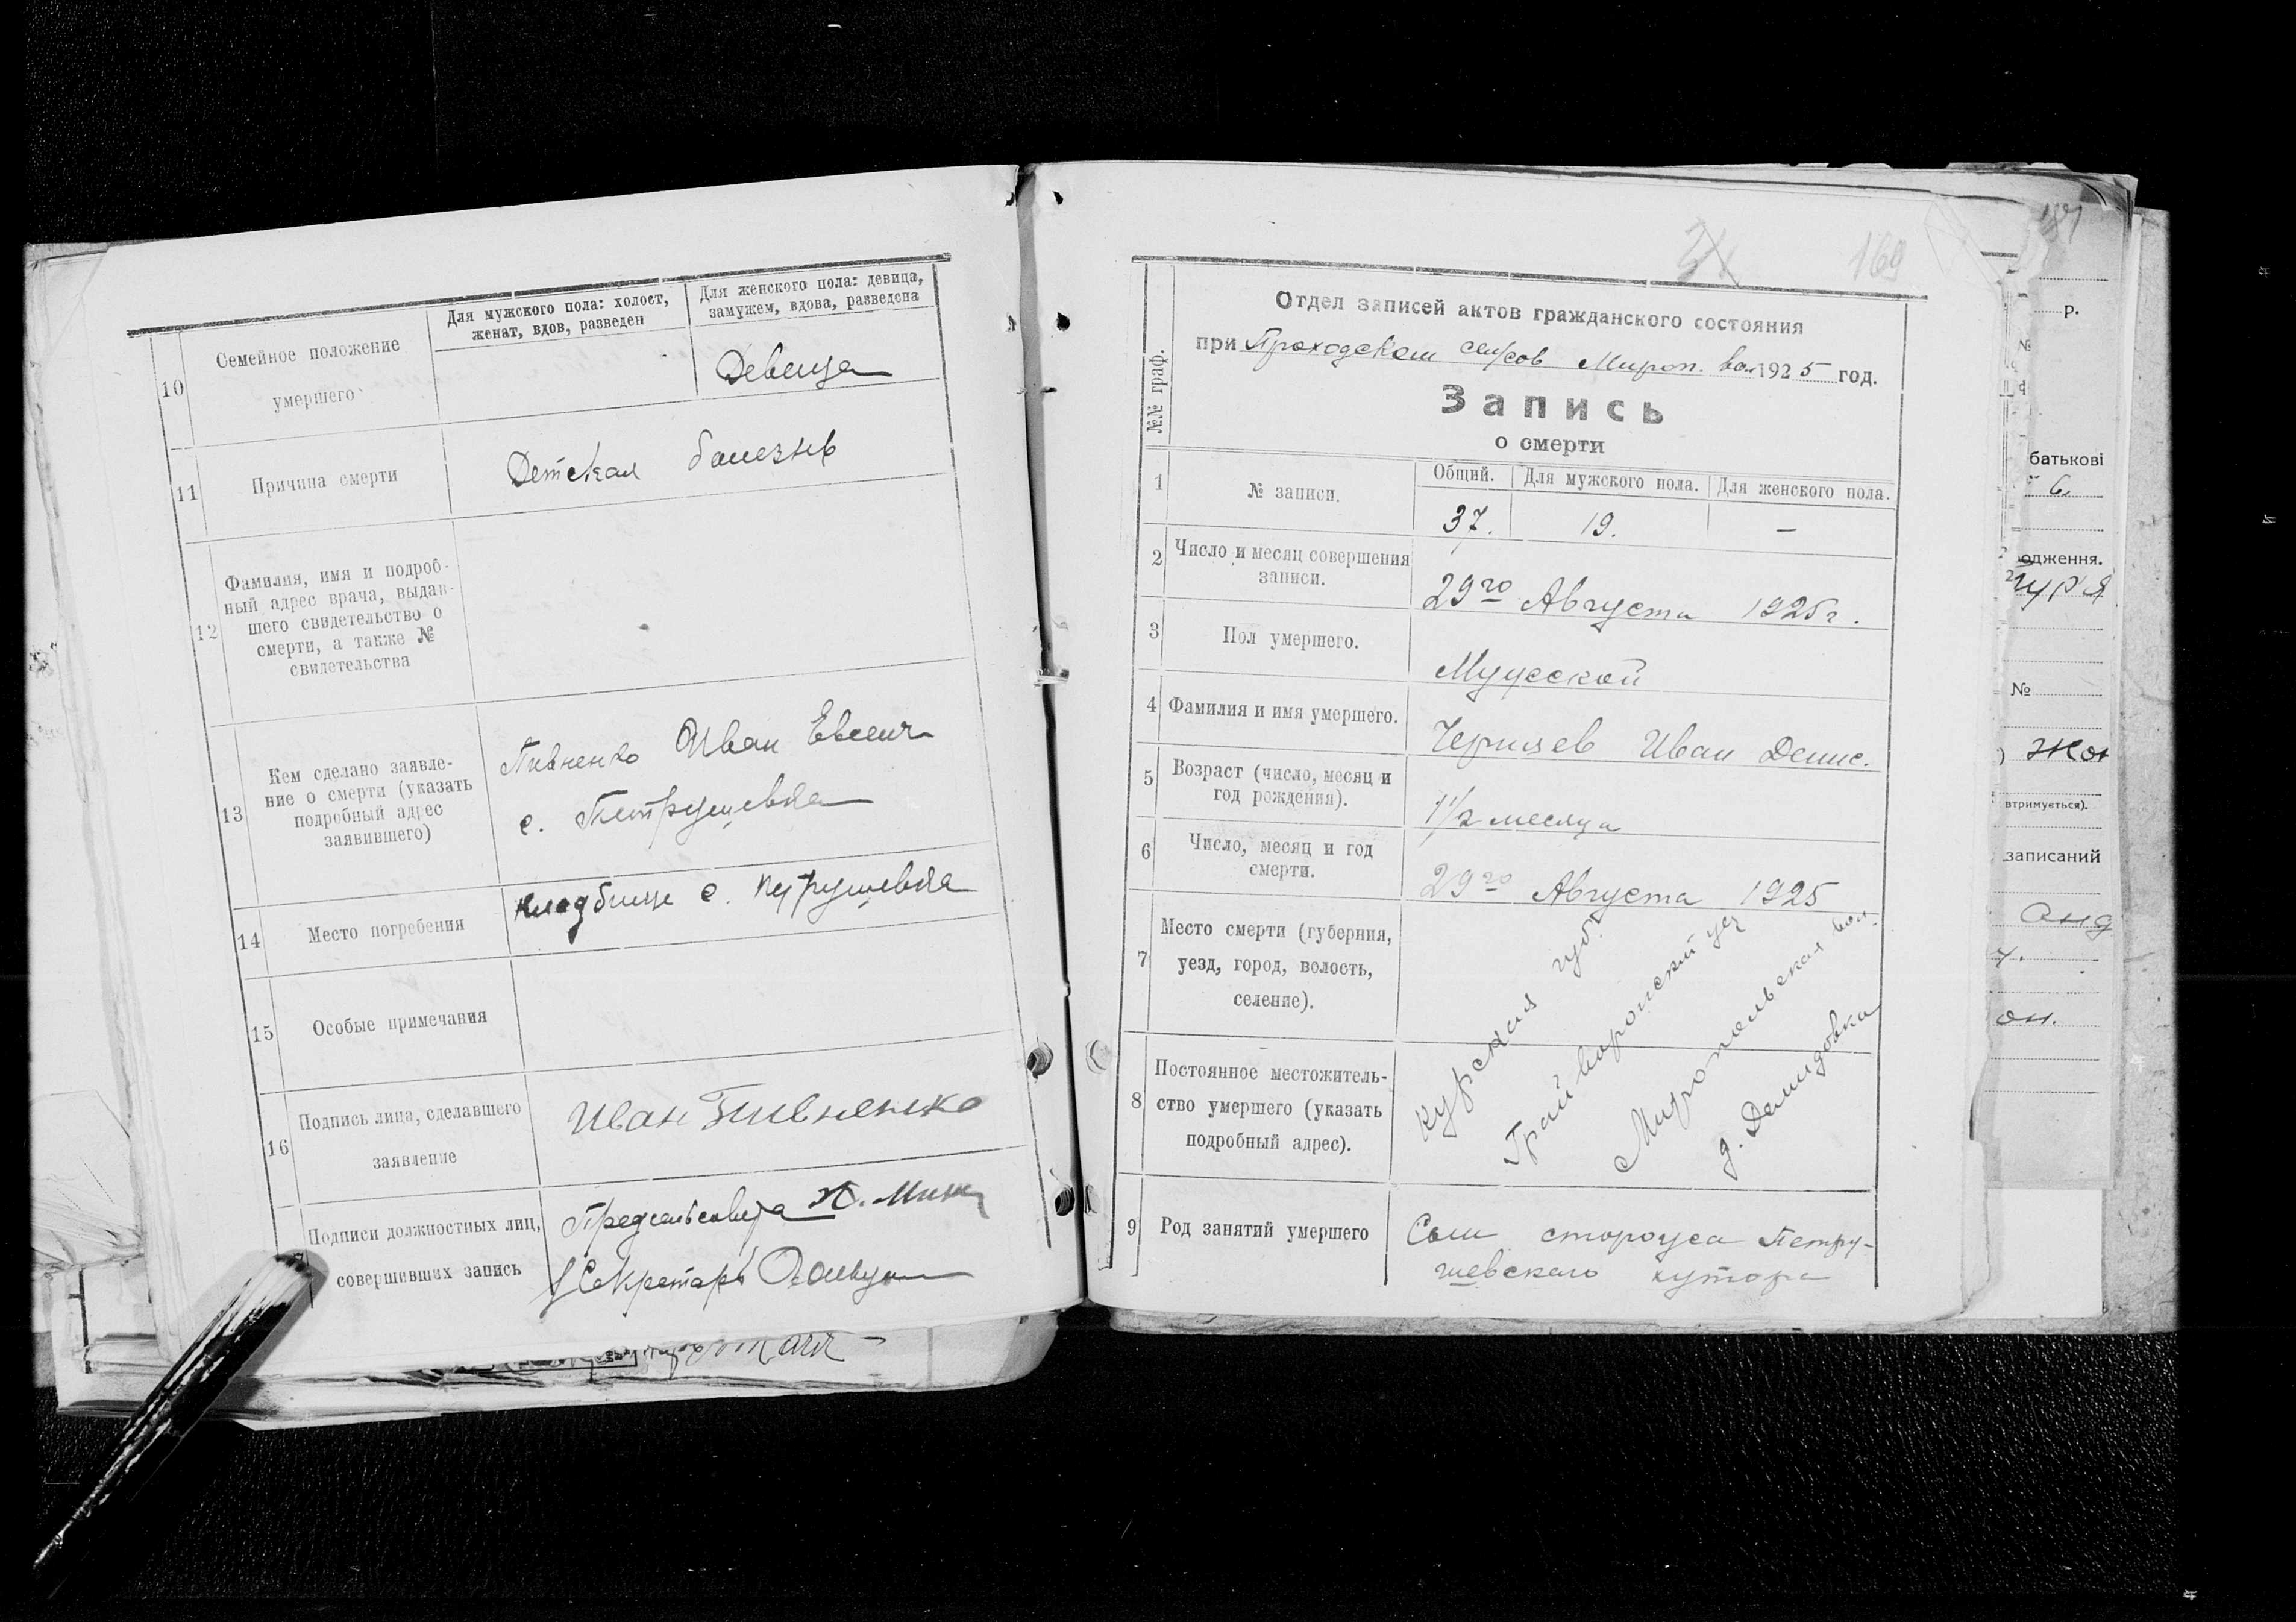 10
Семейное положение
умершего
Для мужского пола: холост,
женат, вдов, разведен
Для женского пола: девица,
замужем, вдова, разведена
Девица
11
Причина смерти
Детская болезнь
12
Фамилия, имя и подроб-
ный адрес врача, выдав-
шего свидетельство о
смерти, а также №
свидетельства
13
Кем сделано заявле-
ние о смерти (указать
подробный адрес
заявившего)
Пивненко Иван Евсеич
с. Петрушевка
14
Место погребения
кладбище с. Петрушевка
15
Особые примечания
16
Подпись лица, сделавшего
заявление
Иван Пивненко
Подписи должностных лиц,
совершивших запись
Предсельсовета
Секретарь
169
№№ граф.
Отдел записей актов гражданского состояния
при Проходском сельсов Мироп. вол. 1925 год.
Запись
о смерти
1
№ записи.
Общий.
Для мужского пола.
Для женского пола.
37.
19.
—
2
Число и месяц совершения
записи.
29го Августа 1925г.
3
Пол умершего.
Мужской
4
Фамилия и имя умершего.
Черняев Иван Денис.
5
Возраст (число, месяц и
год рождения).
1 1/2 месяца
6
Число, месяц и год
смерти.
29го Августа 1925
7
Место смерти (губерния,
уезд, город, волость,
селение).
8
Постоянное местожитель-
ство умершего (указать
подробный адрес).
Курская губ.
Грайворонский уез
Миропольская вол.
д. Демидовка
9
Род занятий умершего
Сын сторожа Петру-
шевского хутора
р.
№
батькові
6
одження.
№
втримується).
записаний